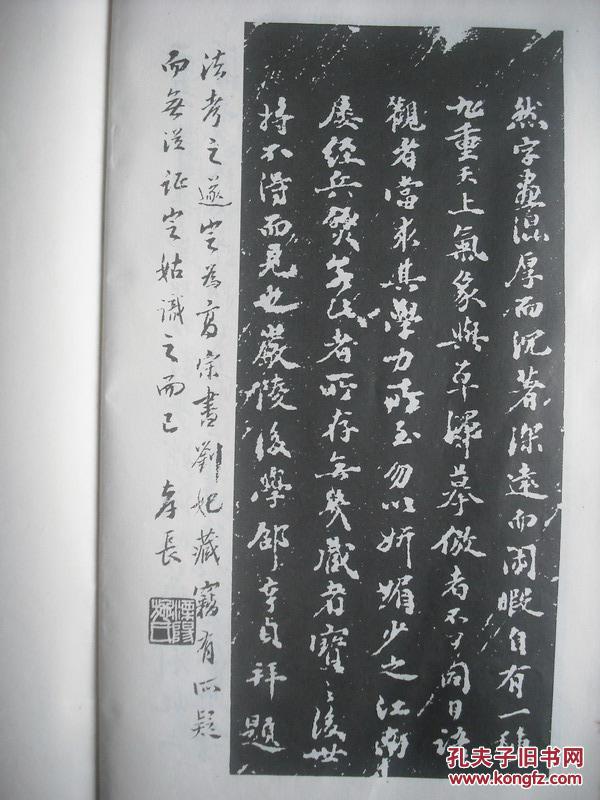 然字画温厚而沉著深远而闲暇自有一种
九重天上氣象與草澤摹倣者不可同日語
觀者當求其學力所至勿以妍媚少之江南
屡经兵燹前代者所存無幾藏者寶之後世
將不得而見也嚴陵後學邵亨貞拜題
法考之遂定為高宗書劉妃藏竊有所疑
而無從証定姑識之而已 存長
孔夫子旧书网
www.kongfz.com